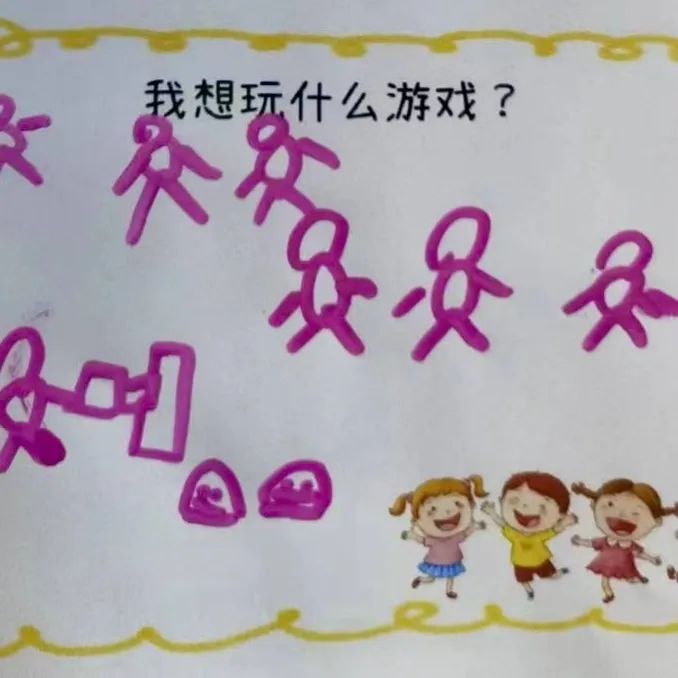 我想玩什么游戏？